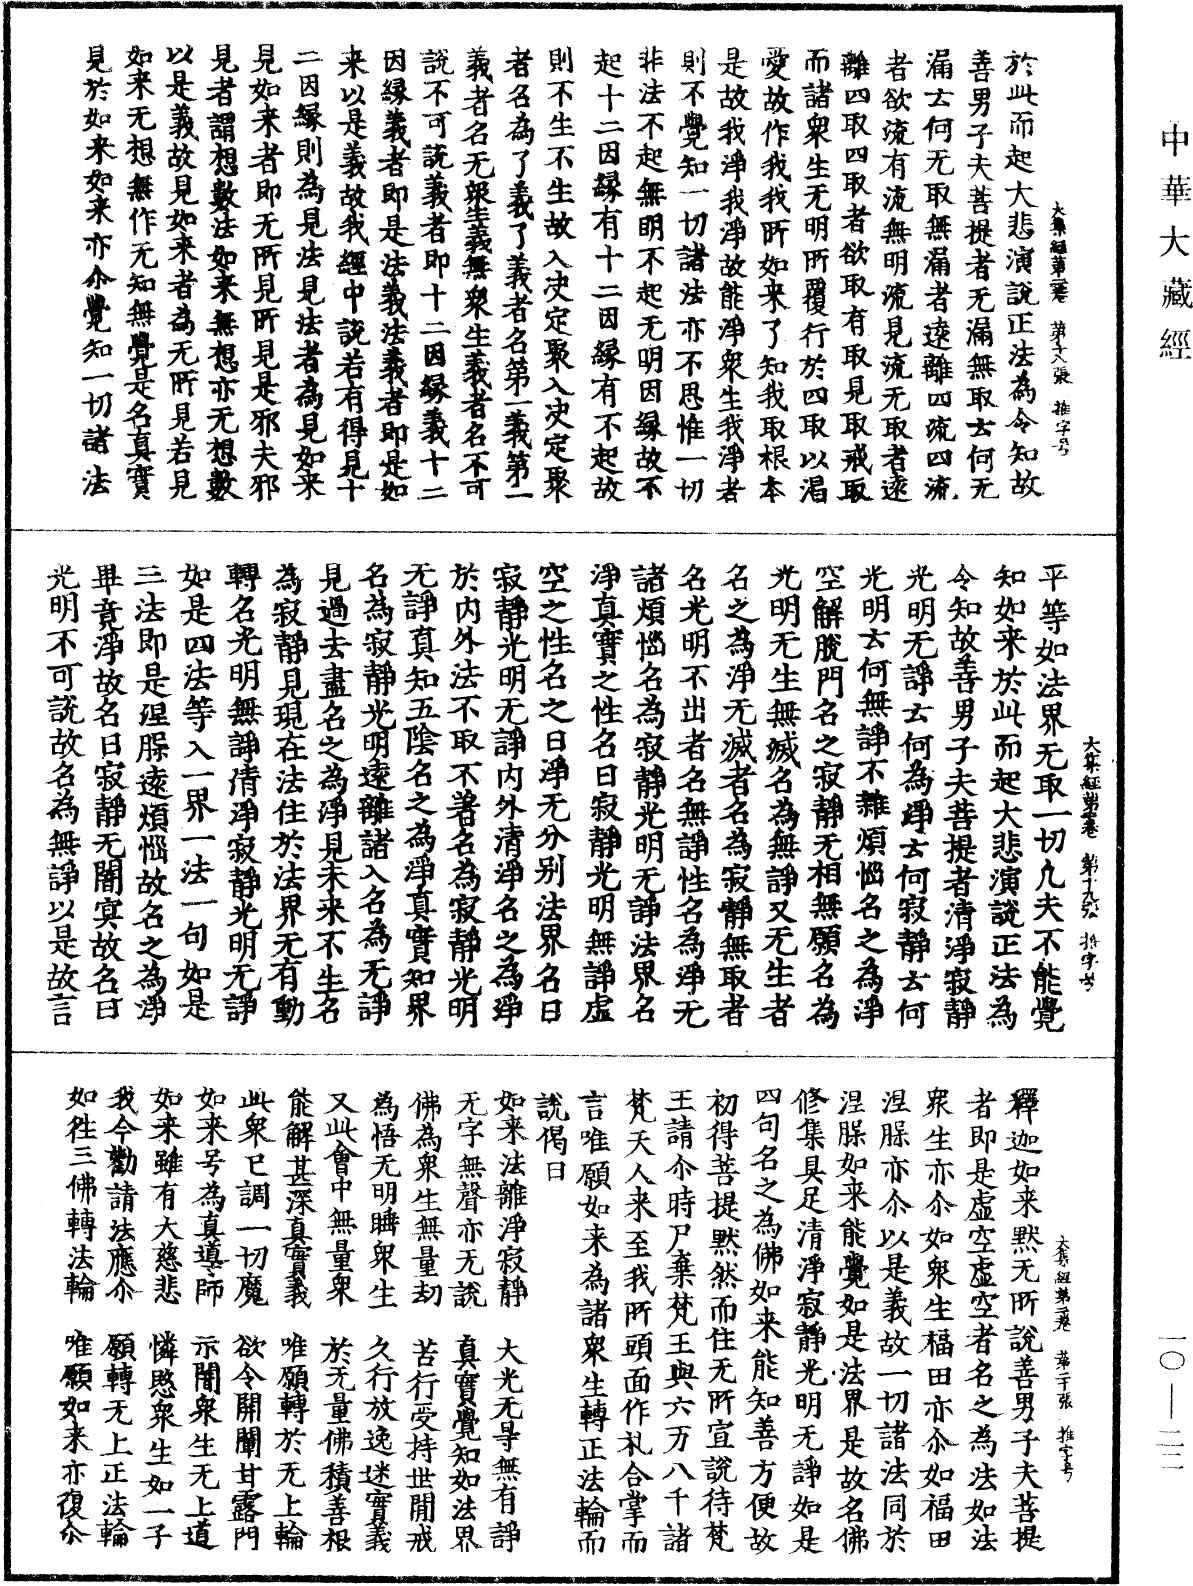 中華大藏經
大集經第二卷 第十八張 推字号
於此而起大悲演說正法為令知故
善男子夫菩提者无漏無取云何无
漏云何无取無漏者遠離四流四流
者欲流有流無明流見流无取者遠
離四取四取者欲取有取見取戒取
而諸衆生无明所覆行於四取以渴
愛故作我我所如来了知我取根本
是故我淨我淨故能淨衆生我淨者
則不覺知一切諸法亦不思惟一切
非法不起無明不起无明因緣故不
起十二因緣有十二因緣有不起故
則不生不生故入决定聚入决定聚
者名為了義了義者名第一義第一
義者名无衆生義無衆生義者名不可
說不可說義者即十二因緣義十二
因緣義者即是法義法義者即是如
来以是義故我經中說若有得見十
二因緣則為見法見法者為見如来
見如来者即无所見所見是邪夫邪
見者謂想數法如来無想亦无想數
以是義故見如来者為无所見若見
如来无想無作无知無覺是名真實
見於如来如来亦尒覺知一切諸法
大集經第二卷 第十九張 推字号
平等如法界无取一切凡夫不能覺
知如来於此而起大悲演說正法為
令知故善男子夫菩提者清淨寂靜
光明无諍云何為淨云何寂靜云何
光明云何無諍不雜煩惱名之為淨
空解脫門名之寂靜无相無願名為
光明无生無滅名為無諍又无生者
名之為淨无滅者名為寂靜無取者
名光明不出者名無諍性名為淨无
諸煩惱名為寂靜光明无諍法界名
淨真實之性名曰寂靜光明無諍虛
空之性名之曰淨无分别法界名曰
寂靜光明无諍内外清淨名之為淨
於内外法不取不著名為寂靜光明
无諍真知五陰名之為淨真實知界
名為寂靜光明遠離諸入名為无諍
見過去盡名之為淨見未来不生名
為寂靜見現在法住於法界无有動
轉名光明無諍清淨寂靜光明无諍
如是四法等入一界一法一句如是
三法即是涅槃遠煩惱故名之為淨
畢竟淨故名曰寂靜无闇冥故名曰
光明不可說故名為無諍以是故言
大集經第二卷 第二十張 推字号
釋迦如来默无所說善男子夫菩提
者即是虛空虛空者名之為法如法
衆生亦尒如衆生福田亦尒如福田
涅槃亦尒以是義故一切諸法同於
涅槃如来能覺如是法界是故名佛
修集具足清淨寂靜光明无諍如是
四句名之為佛如来能知善方便故
初得菩提默然而住无所宣說待梵
王請尒時尸棄梵王與六万八千諸
梵天人来至我所頭面作礼合掌而
言唯願如来為諸衆生轉正法輪而
說偈曰
如来法離淨寂靜 大光无㝵無有諍
无字無聲亦无說 真實覺知如法界
佛為衆生無量劫 苦行受持世間戒
為悟无明睡衆生 久行放逸迷實義
又此會中無量衆 於无量佛積善根
能解甚深真實義 唯願轉於无上輪
此衆已調一切魔 欲令開闡甘露門
如来号為真導師 示闇衆生无上道
如来雖有大慈悲 憐愍衆生如一子
我今勸請法應尒 願轉无上正法輪
如往三佛轉法輪 唯願如来亦復尒
一〇—二三